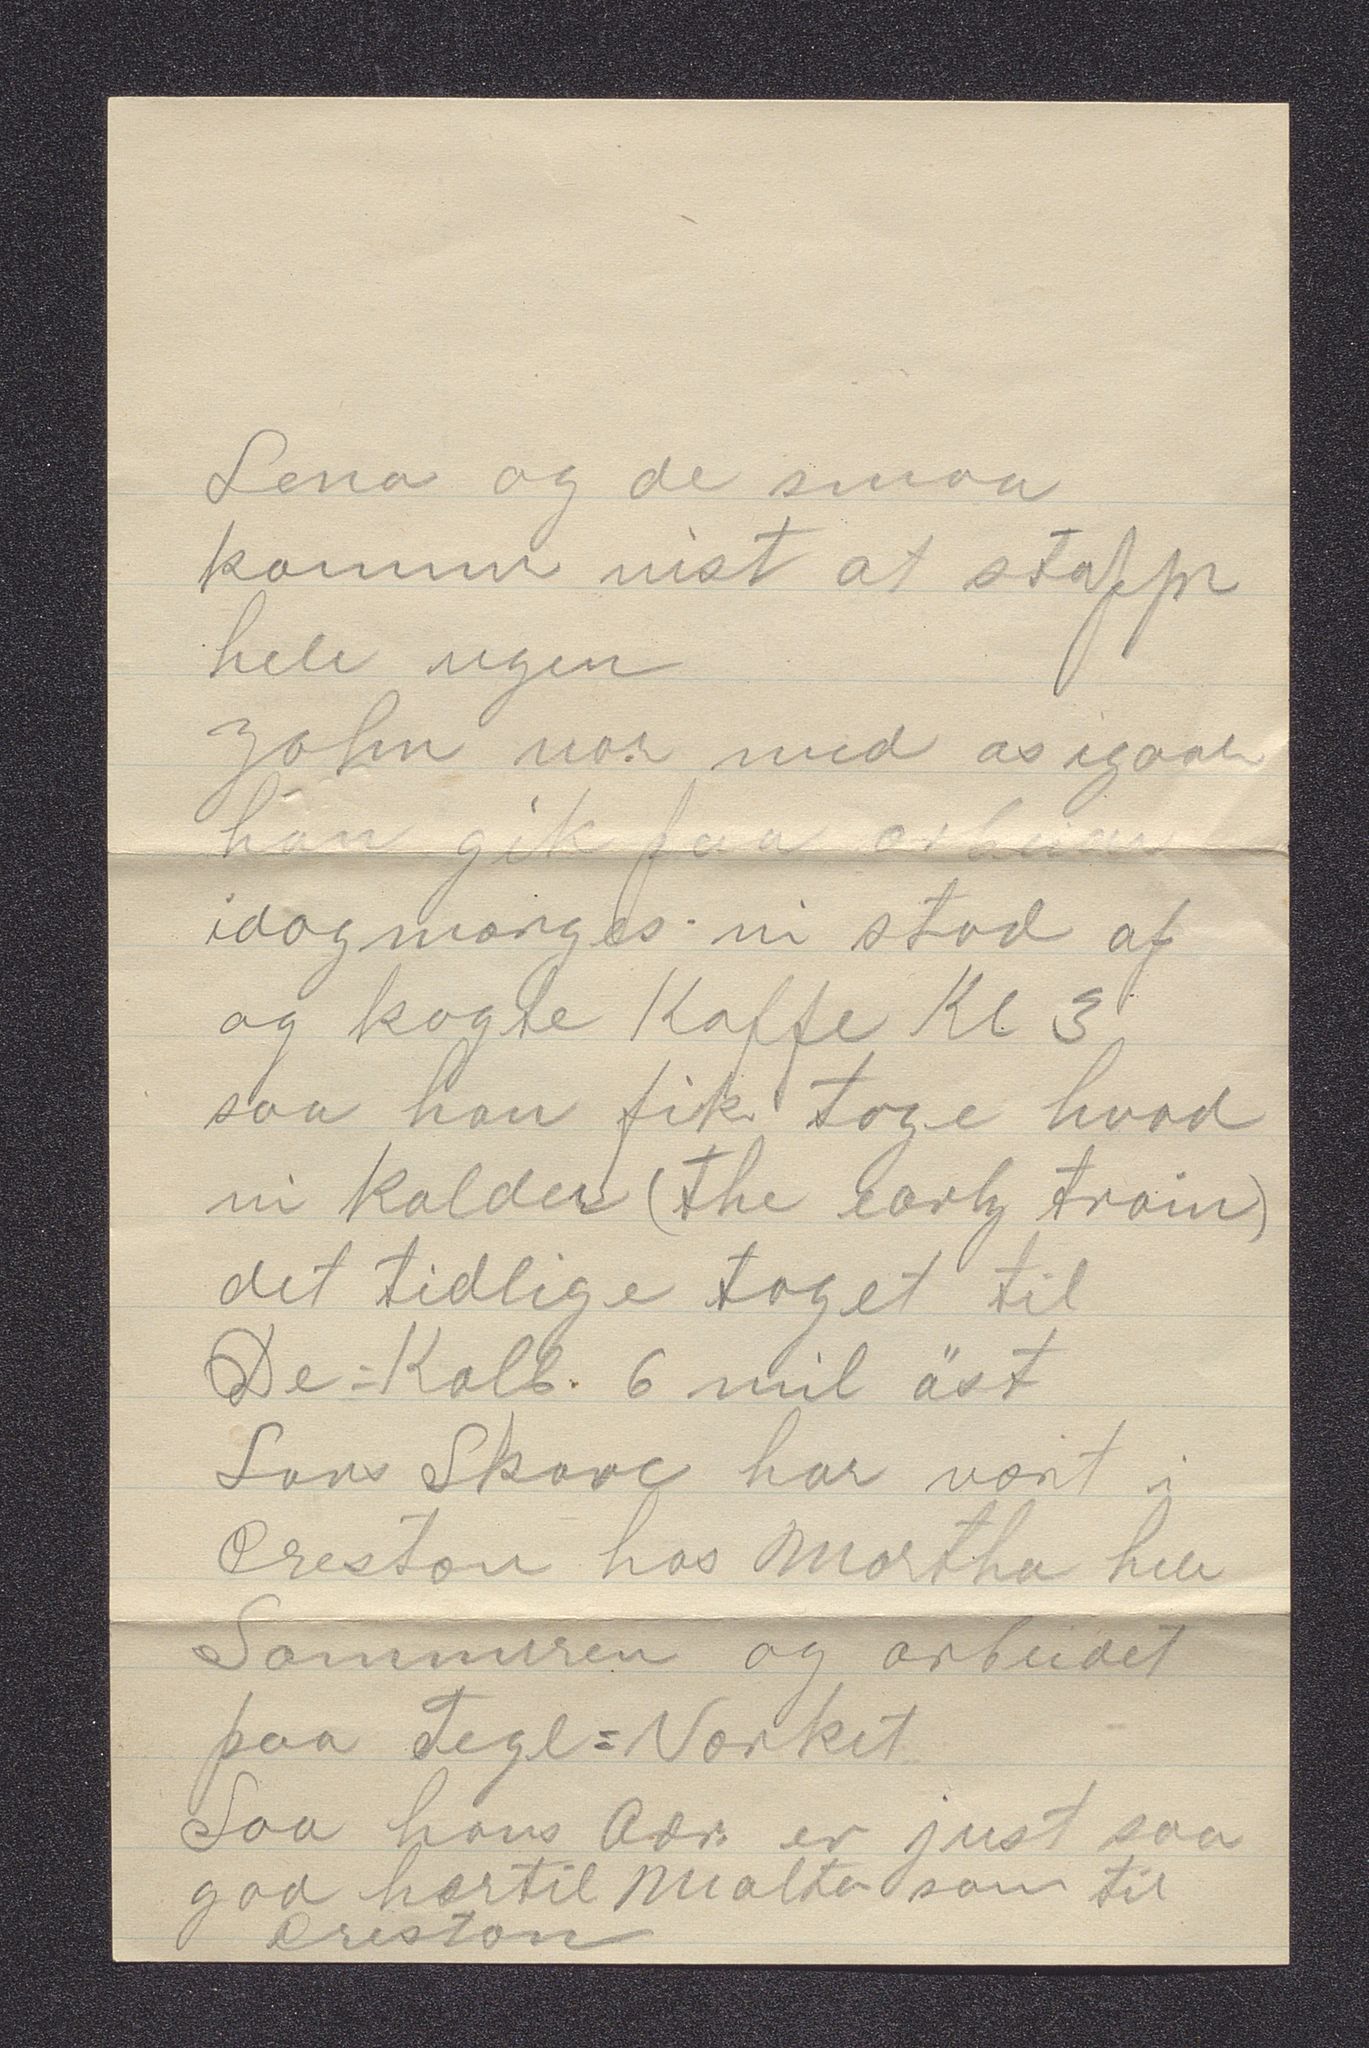 Lena og de smaa
kommer vist at stoppe
hele ugen
John var med os igaar
han gik paa arbeide
idagmorges vi stod af
og kogte Kaffe Kl 3
saa han fik toge hvad
vi kalder (the early train)
det tidlige toget til
De=Kalb. 6 mil äst
Lars Skare har vært i
Creston hos Martha hele
Sommeren og arbeidet
paa Tegl=Værket
Saa hans Adr. er just saa
god hertil Malta som til
Creston